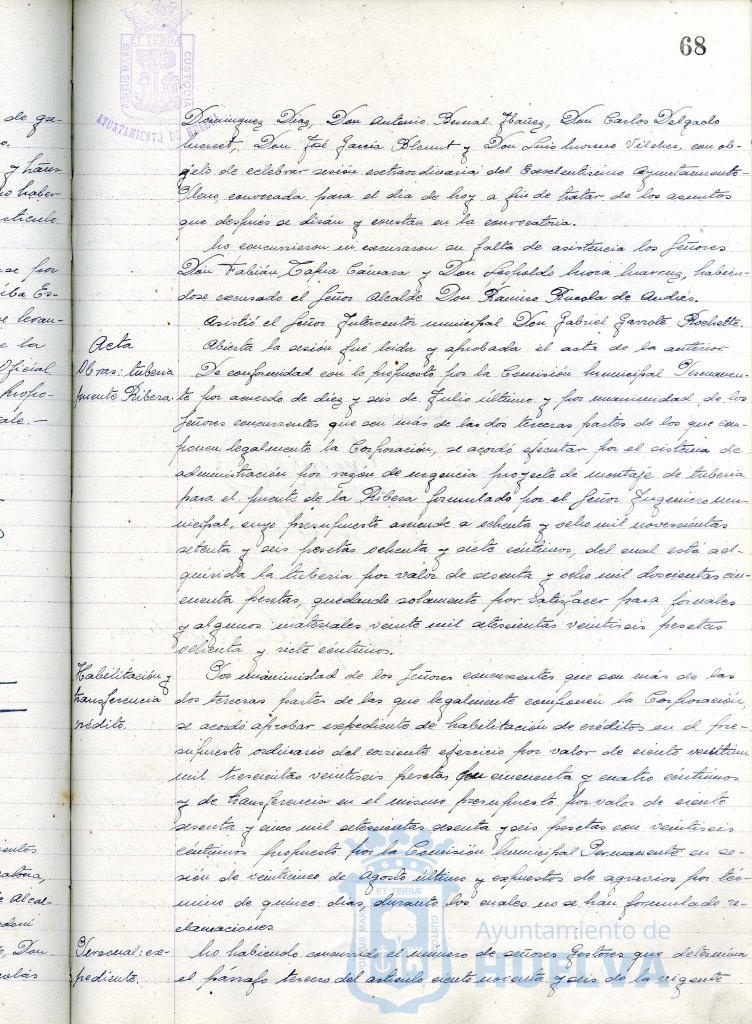 68
PORTUS MARIS ET TERRÆ CUSTODIA
AYUNTAMIENTO DE HUELVA
Dominguez Diaz, Don Antonio Bernal Ibañez, Don Carlos Delgado
Don José Garcia y Don Luis Moreno Vilches, con ob-
jeto de celebrar sesión extraordinaria del Excelentisimo Ayuntamiento
Pleno, convocada para el dia de hoy a fin de tratar de los asuntos
que después se dirán y constan en la convocatoria.
No concurrieron ni excusaron su falta de asistencia los Señores
Don Fabián Tapia Cámara y Don Leopoldo habién-
dose excusado el Señor Alcalde Don Ramiro de Andrés.
Asistió el Señor Interventor municipal Don Gabriel Garrote Rochette.
Acta
Abierta la sesión fué leida y aprobada el acta de la anterior.
Obras: tuberia
puente Ribera.
De conformidad con lo propuesto por la Comisión Municipal Permanen-
te por acuerdo de diez y seis de Julio último y por unanimidad de los
Señores concurrentes que son más de las dos terceras partes de los que com-
ponen legalmente la Corporación, se acordó ejecutar por el sistema de
administración por razón de urgencia proyecto de montaje de tuberia
para el puente de la Ribera formulado por el Señor Ingeniero mu-
nicipal, cuyo presupuesto asciende a ochenta y ocho mil novecientas
setenta y seis pesetas ochenta y siete centimos, del cual está ad-
quirida la tuberia por valor de sesenta y ocho mil doscientas cin-
cuenta pesetas, quedando solamente por satisfacer para jornales
y algunos materiales veinte mil setecientas veintiseis pesetas
ochenta y siete centimos.
Habilitación y
transferencia
crédito.
Por unanimidad de los Señores concurrentes que son más de las
dos terceras partes de las que legalmente componen la Corporación,
se acordó aprobar expediente de habilitación de créditos en el pre-
supuesto ordinario del corriente ejercicio por valor de ciento veintiun
mil trescientas veintiseis pesetas con cincuenta y cuatro centimos
y de transferencia en el mismo presupuesto por valor de ciento
sesenta y cinco mil setecientas sesenta y seis pesetas con veintiseis
centimos propuesto por la Comisión Municipal Permanente en se-
sión de veinticinco de Agosto último y expuestos de agravios por tér-
mino de quince dias, durante los cuales no se han formulado re-
clamaciones.
Personal: ex-
pediente.
No habiendo concurrido el número de señores Gestores que determina
el párrafo tercero del articulo ciento noventa y seis de la vigente
Ayuntamiento de
HUELVA